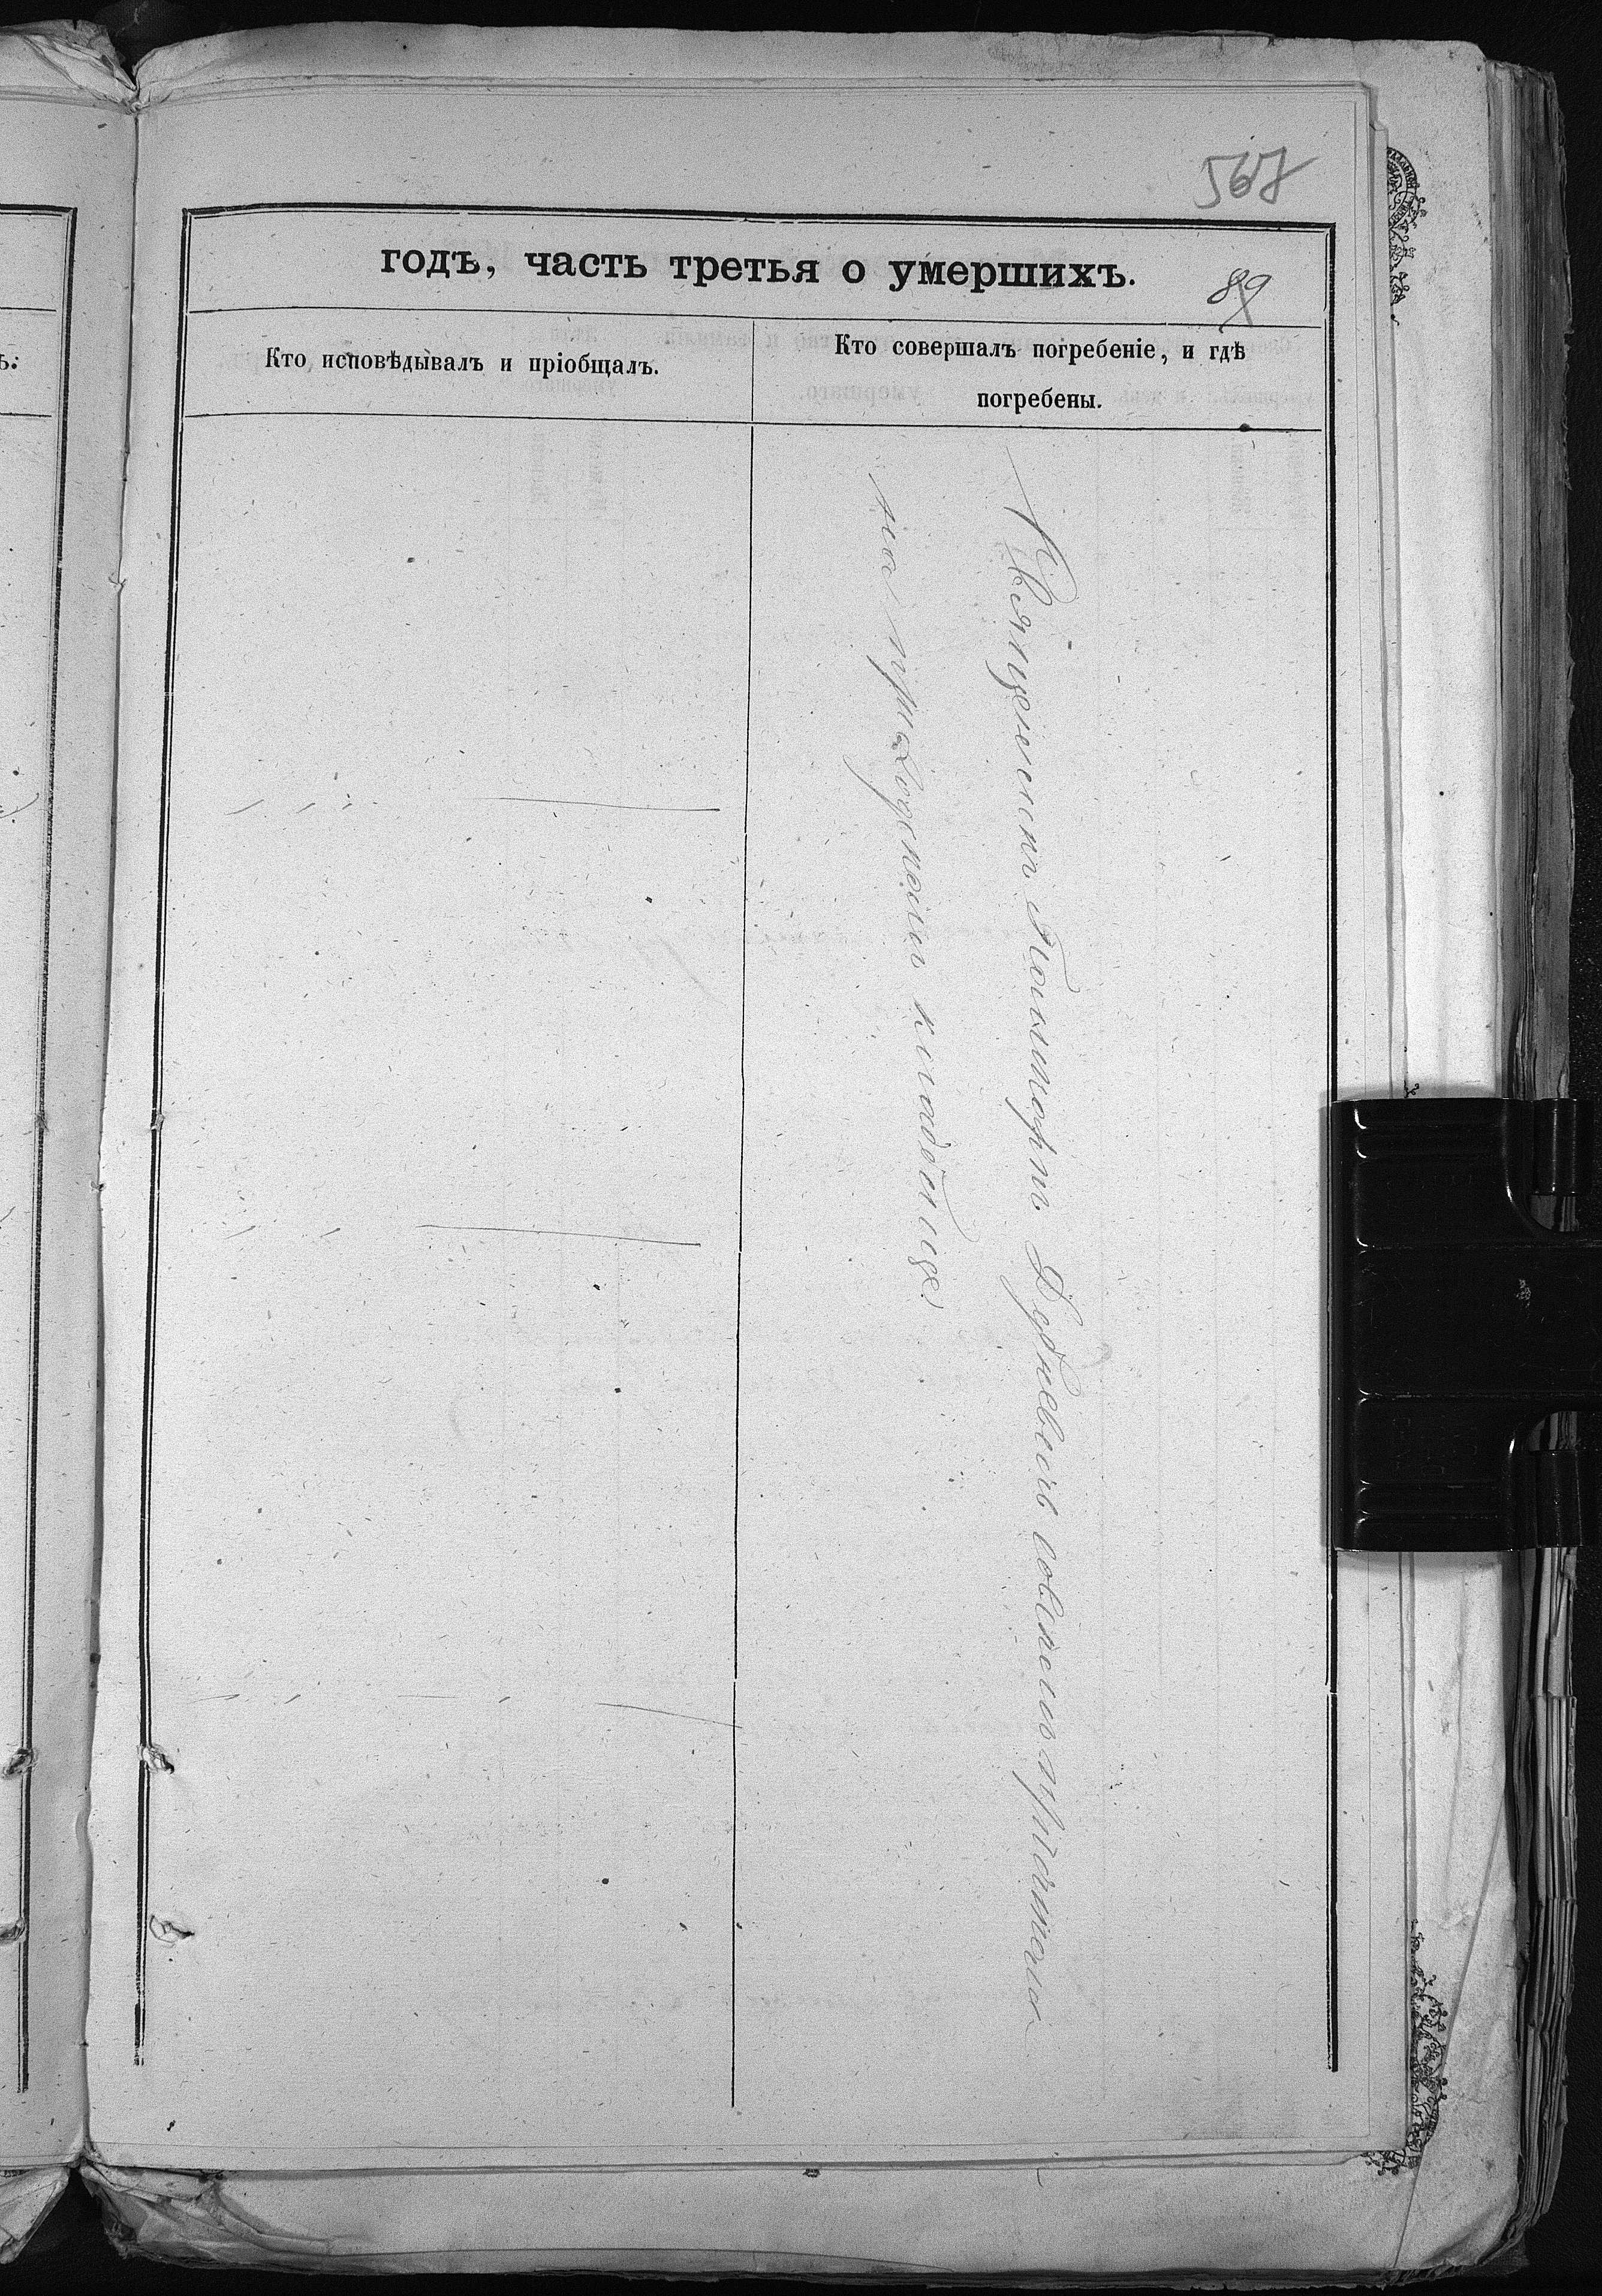 567
годъ, часть третья о умершихъ.
89
Кто исповѣдывалъ и пріобщалъ.
Кто совершалъ погребеніе, и гдѣ
погребены.
Священникъ Поликарпъ съ причтомъ
на приходскомъ кладбищѣ
ъ: